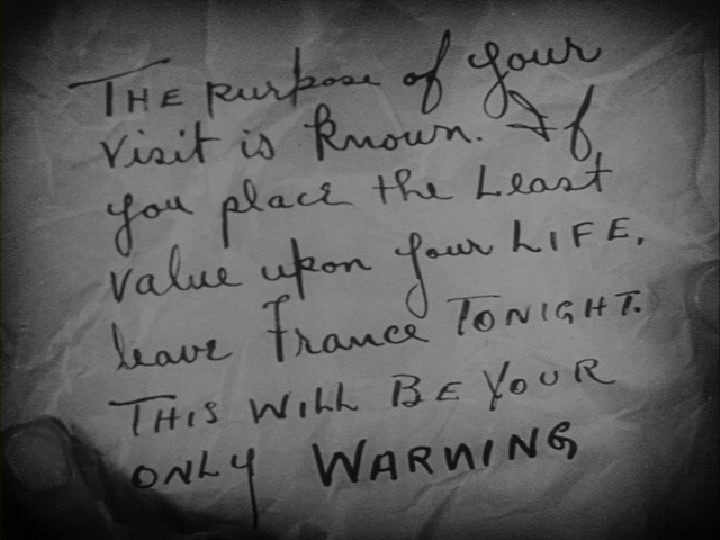 THE purpose of your
visit is known. If
you place the Least
value upon your LIFE,
leave France TONIGHT.
THIS WILL BE YOUR
ONLY WARNING